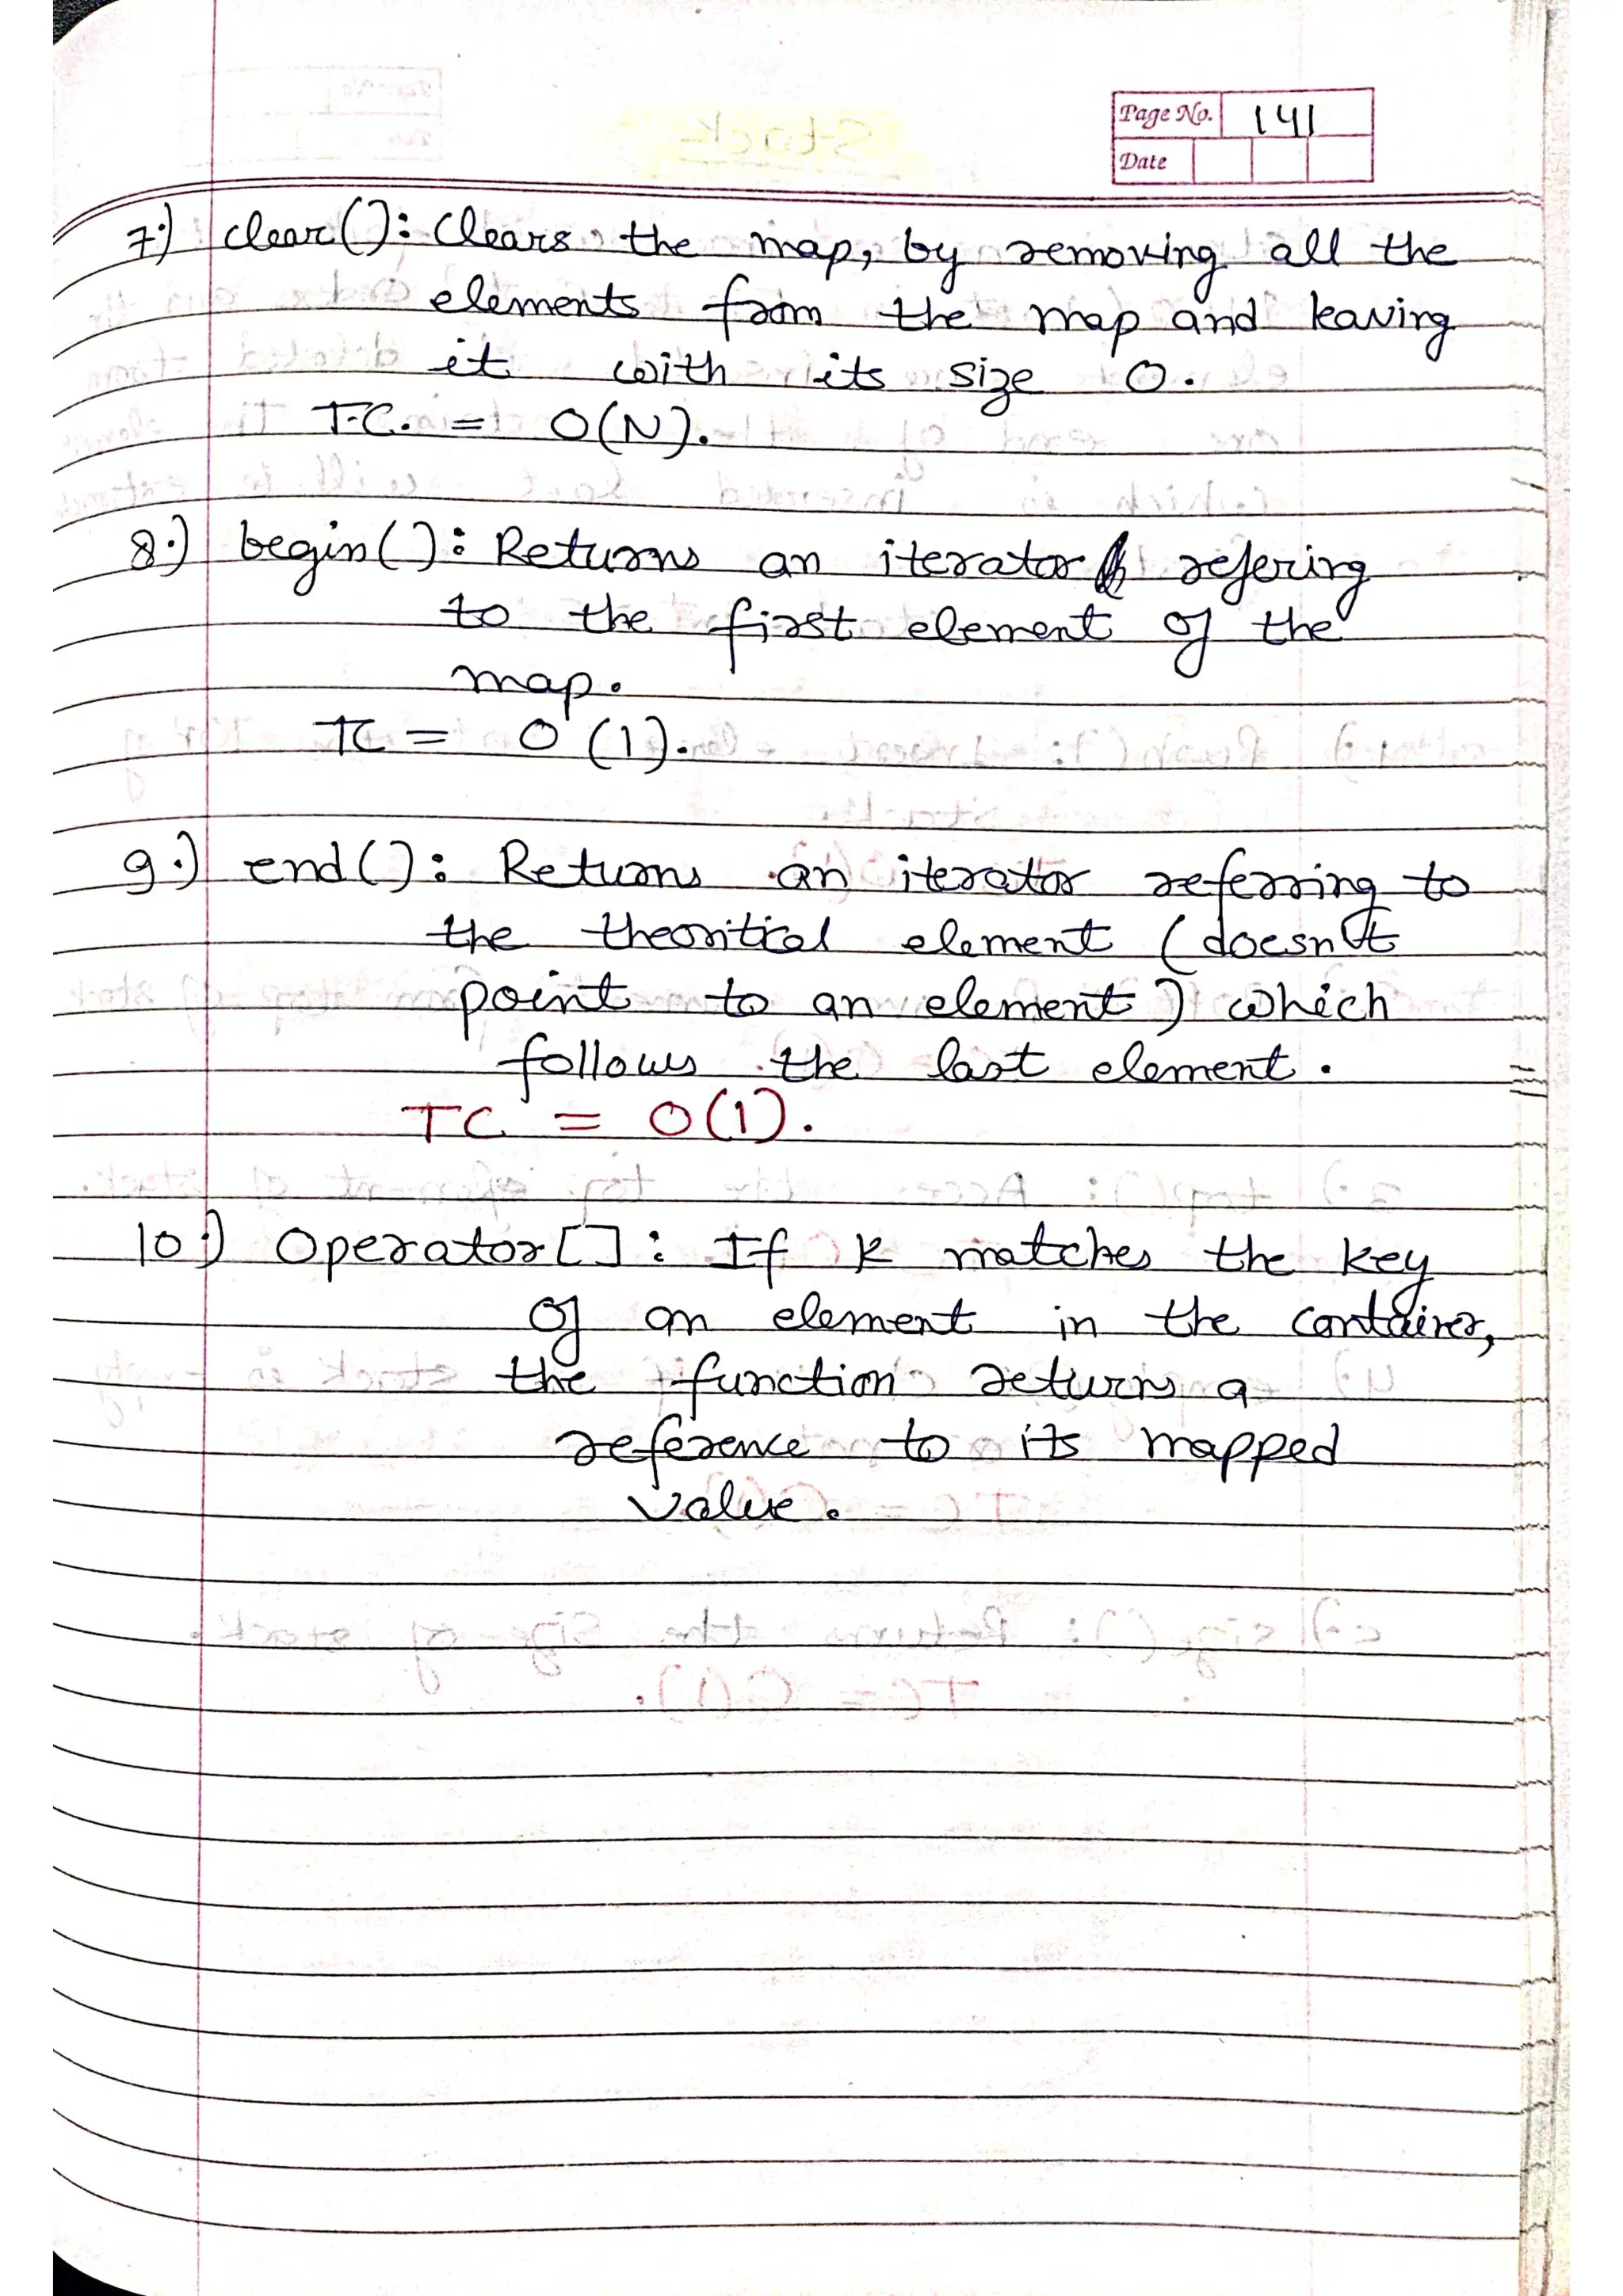 Page No. 141
Date
7.) clear(): Clears the map, by removing all the
elements from the map and leaving
it with its size 0.
T.C. = O(N).
8.) begin(): Returns an iterator refering
to the first element of the
map.
TC = O(1).
9.) end(): Returns an iterator referring to
the theoritical element (doesn't
point to an element) which
follows the last element.
TC = O(1).
10.) Operator[]: If K matches the key
of an element in the container,
the function returns a
reference to its mapped
value.